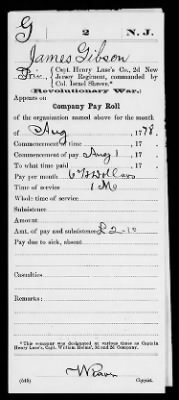 G | 2 | N. J.
James Gibson
Pri., Capt. Henry Luse's Co., 2d New
Jersey Regiment, commanded by
Col. Israel Shreve.*
(Revolutionary War.)
Appears on
Company Pay Roll
of the organization named above for the month
of Aug , 1778.
Commencement of time , 17
Commencement of pay Aug 1 , 17
To what time paid , 17
Pay per month 6⅔ Dollars
Time of service 1 Mo
Whole time of service
Subsistence
Amount
Amt. of pay and subsistence £2-10
Pay due to sick, absent
Casualties
Remarks:
*This company was designated at various times as Captain
Henry Luse's, Capt. William Helms', 3d and 5d Company.
Weaver
(545) Copyist.